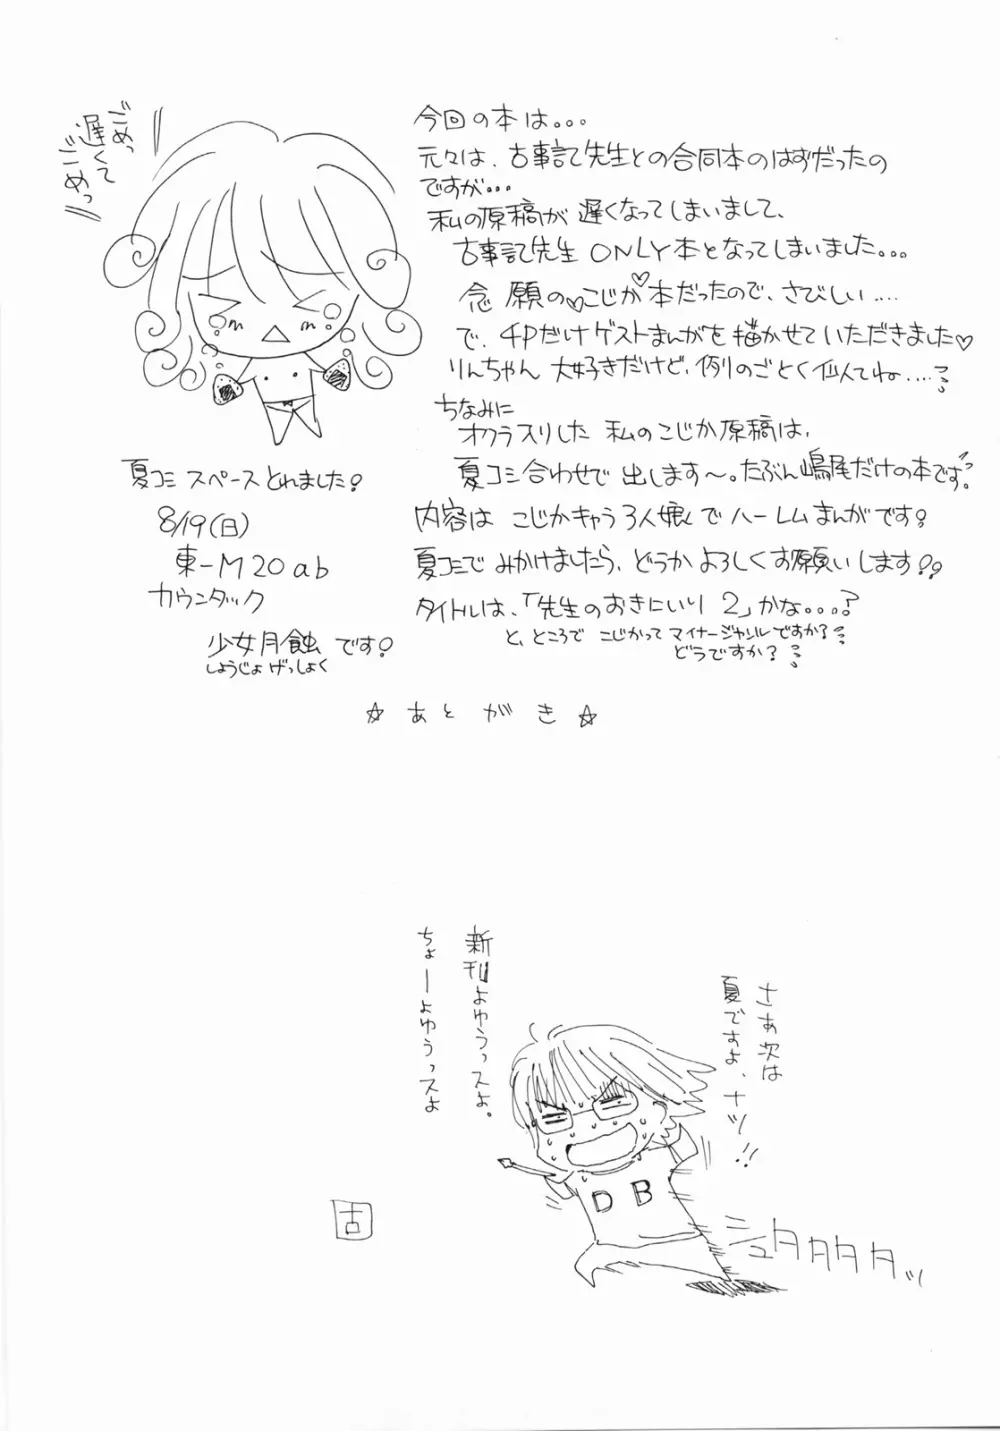 ごめっ
遅くて
ごめっ
今回の本は。。。
元々は、古事記先生との合同本のはずだったの
ですが・・・
私の原稿が遅くなってしまいまして、
古事記先生ONLY本となってしまいました。。。
念願の♡こじか♡本だったので、さびしい・・・・
で、4Pだけゲストまんがを描かせていただきました♡
りんちゃん大好きだけど、例のごとく似てね・・・・?
ちなみに
オクラスリした私のこじか原稿は、
夏コミ合わせで出します〜。たぶん嶋尾だけの本です。
内容はこじかキャラ3人娘でハーレムまんがです!
夏コミでみかけましたら、どうかよろしくお願いします!!
タイトルは、「先生のおきにいり2」かな。。。。?
と、ところでこじかってマイナージャンルですか?
どうですか?
夏コミスペースとれました!
8/19(日)
東-M20ab
カウンタック
少女月蝕です!
しょうじょげっしょく
☆あとがき☆
さあ次は
夏ですよ、ナツ!!
新刊よゆうっスよ。
ちょーよゆうっスよ
DB
シュタタタタッ
古